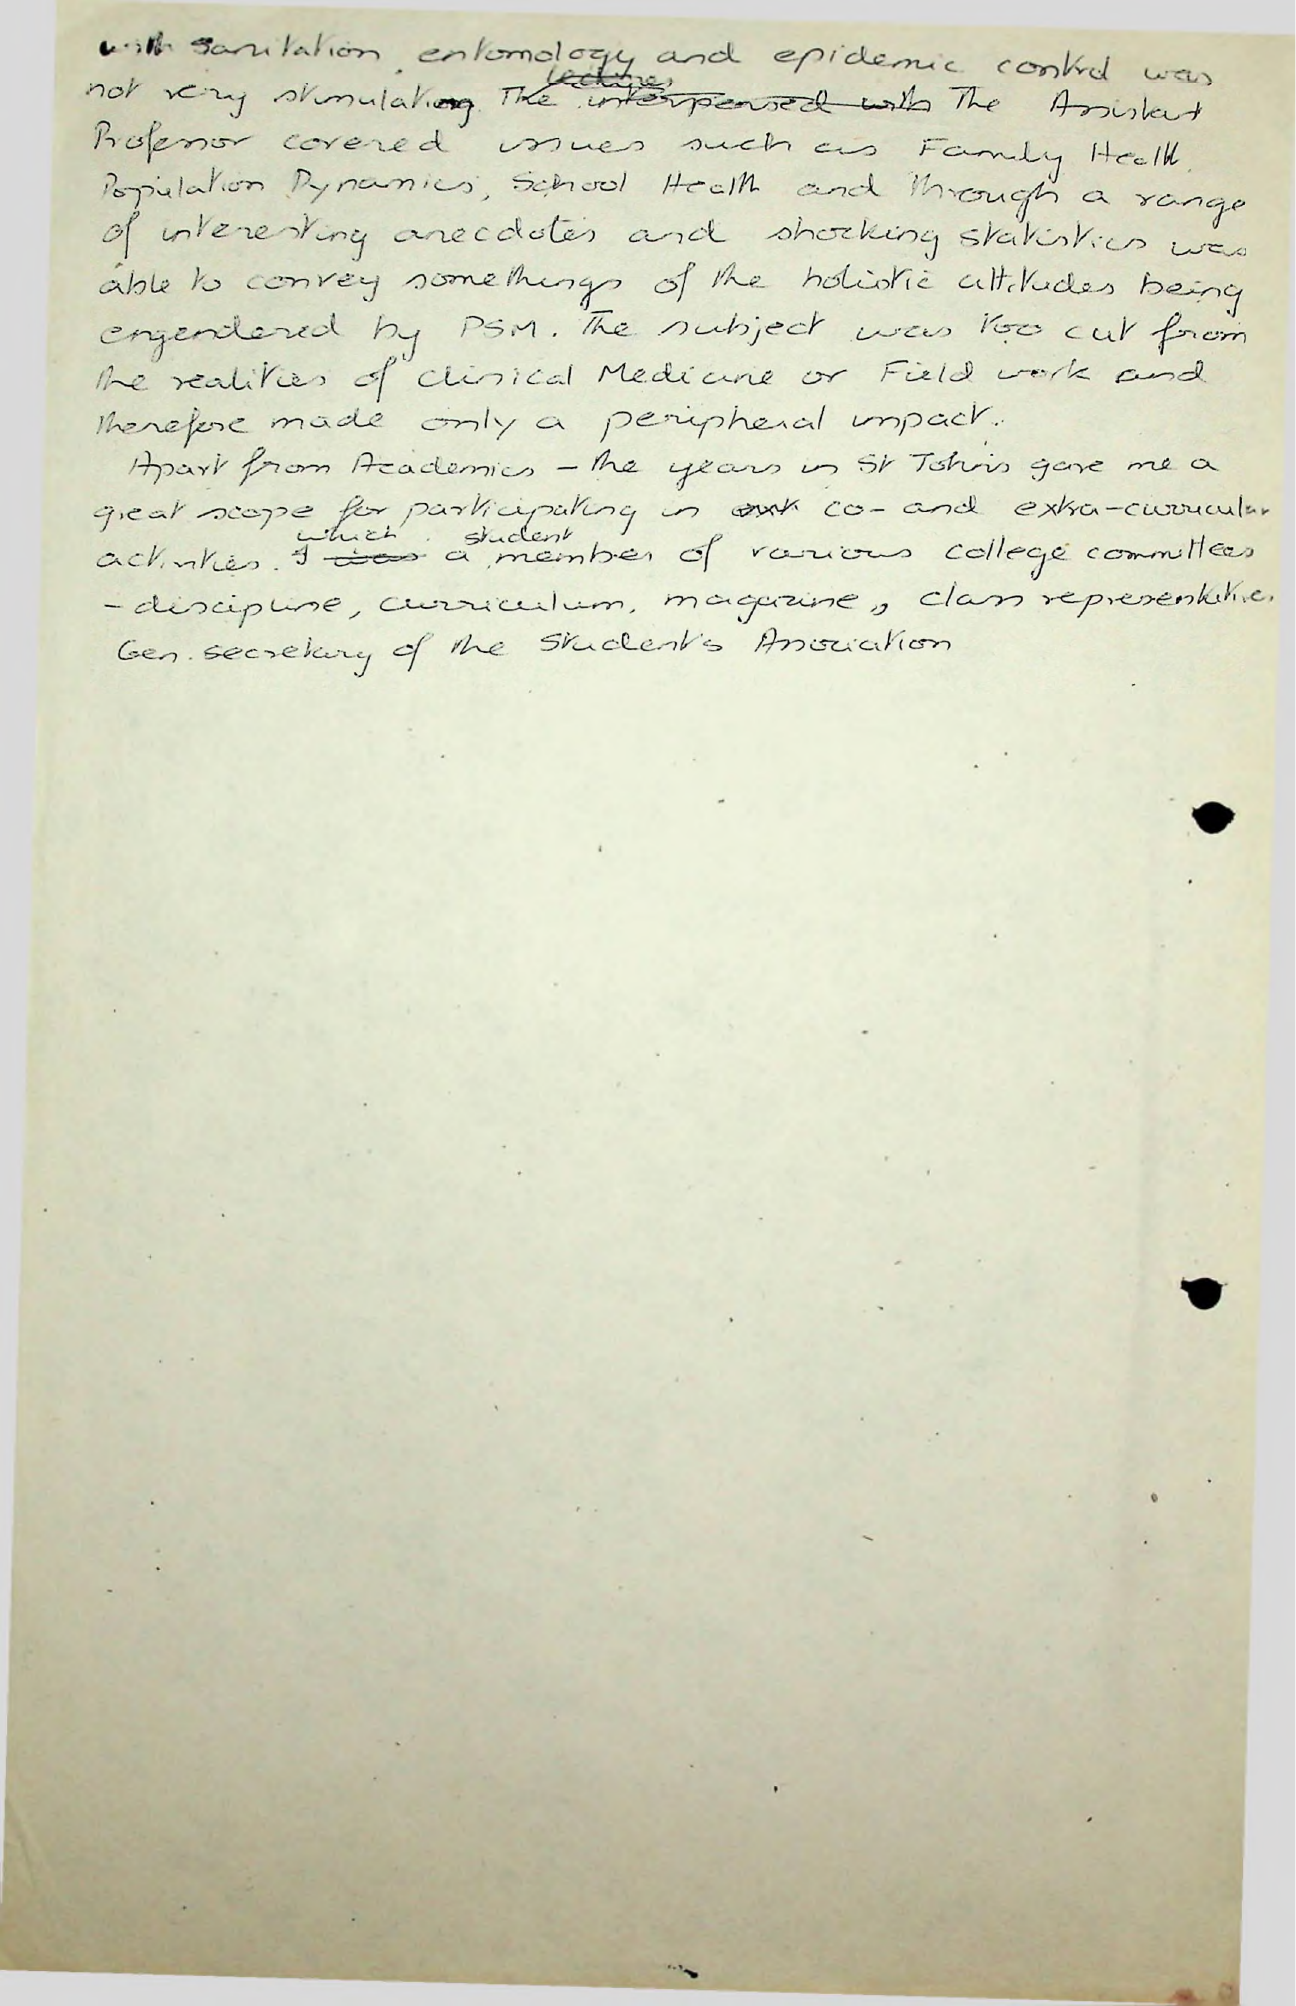 with sanitation, entomology and epidemic control was
not very stimulating. The lectures interspersed with The Assistant
Professor covered issues such as Family Health,
Population Dynamics, School Health and through a range
of interesting anecdotes and shocking statistics was
able to convey somethings of the holistic attitudes being
engendered by PSM. The subject was too cut from
the realities of clinical Medicine or Field work and
therefore made only a peripheral impact.
Apart from Academics - the years in St John's gave me a
great scope for participating in ext co- and extra-curricular
activities. which I was a student member of various college committees
- discipline, curriculum, magazine, class representative,
Gen. secretary of the Student's Association